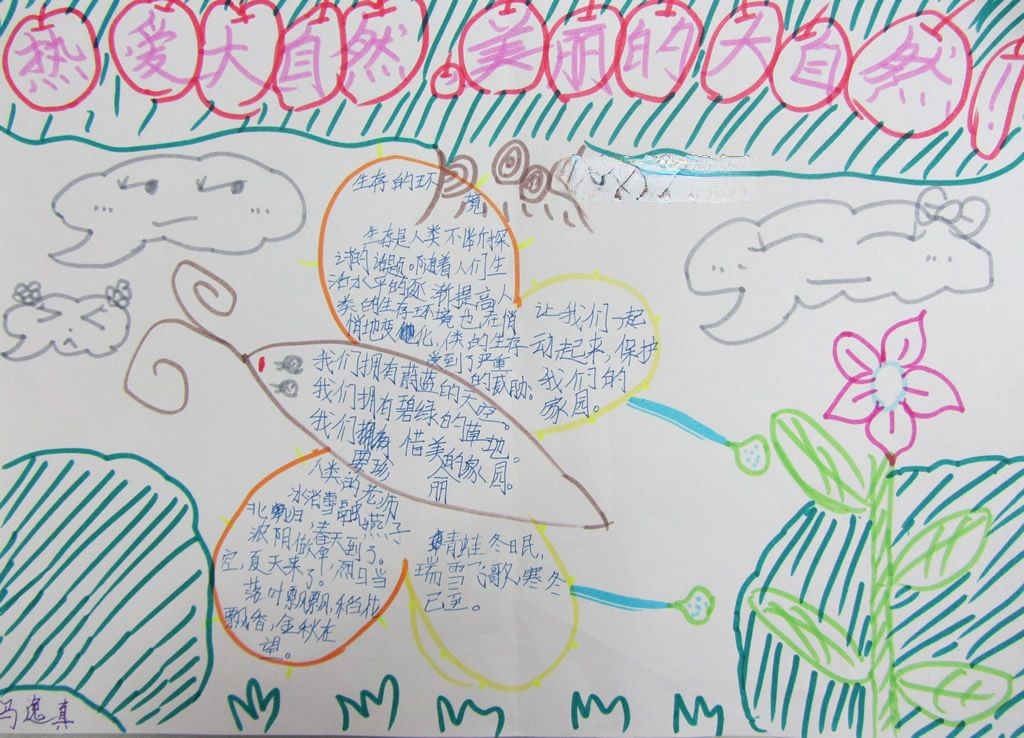 热爱大自然。美丽的大自然
生存的环
境
生存是人类不断探
讨的话题。随着人们生
活水平的逐渐提高人
类的生存环境也在悄
悄地变化,人类的生存
受到了严重
的威胁。
让我们一起
动起来,保护
我们的
家园。
我们拥有蔚蓝的天空。
我们拥有碧绿的草地。
我们拥有
要珍惜美丽的家园。
人类的老师
冰消雪融,燕子
北归,春天到了。
浓阴做伞
烈日当
空,夏天来了。
落叶飘飘,稻花
飘香,金秋在
望。
青蛙冬眠,
瑞雪飞歌,寒冬
已至。
冯逸真